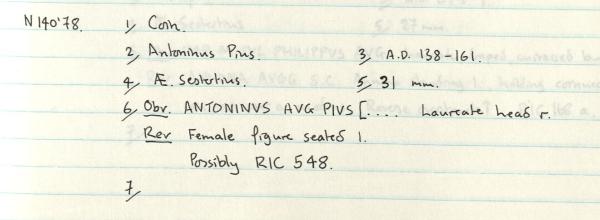 N140'78. 1, Coin.
2, Antoninus Pius. 3, A.D. 138-161.
4, Æ. Sestertius. 5, 31 mm.
6, Obv. ANTONINVS AVG PIVS [.... Laureate head r.
Rev Female figure seated l.
Possibly RIC 548.
7,